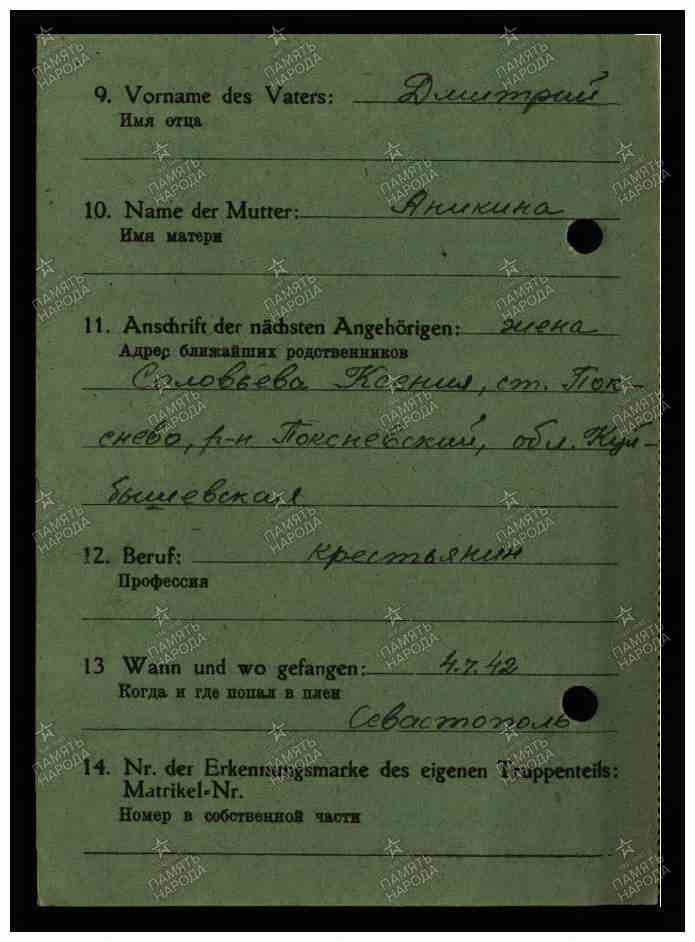 9. Vorname des Vaters: Дмитрий
Имя отца
10. Name der Mutter: Аникина
Имя матери
11. Anschrift der nächsten Angehörigen: жена
Адрес ближайших родственников
Соловьева Ксения, ст. Пок-
снево, р-н Покснев́ский, обл. Куй-
бышевская
12. Beruf: крестьянин
Профессия
13 Wann und wo gefangen: 4.7.42
Когда и где попал в плен
Севастополь
14. Nr. der Erkennungsmarke des eigenen Truppenteils:
Matrikel-Nr.
Номер в собственной части
ПАМЯТЬ НАРОДА